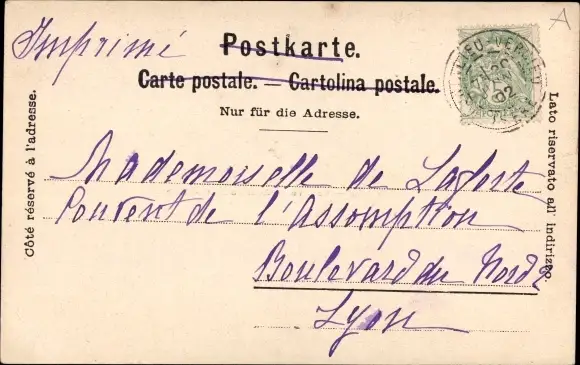 Imprimé
Postkarte.
Carte postale. — Cartolina postale.
Nur für die Adresse.
Côté réservé à l'adresse.
Lato riservato all' indirizzo.
Mademoiselle de Laforte
Couvent de l'Assomption
Boulevard du Nord 2
Lyon
02
A